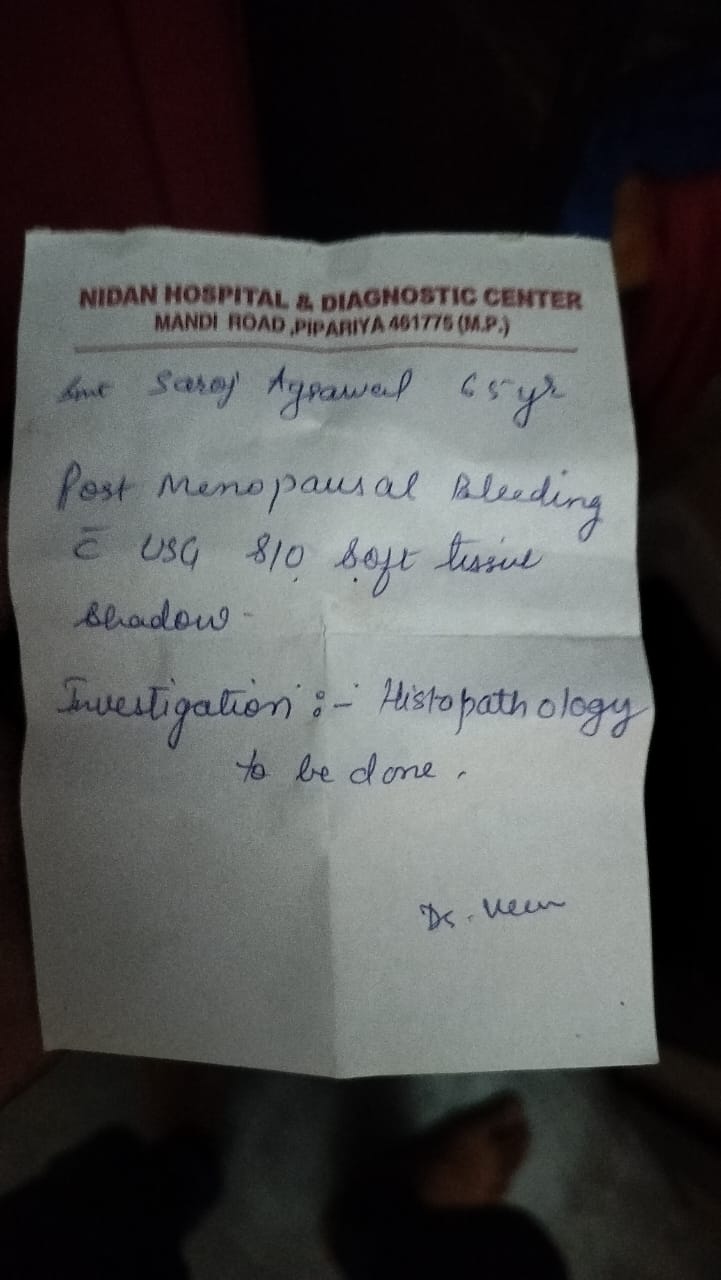 NIDAN HOSPITAL & DIAGNOSTIC CENTER
MANDI ROAD ,PIPARIYA 461775 (M.P.)
Smt Saroj Agrawal 65 yr
Post Menopausal Bleeding
c̄ USG S/O Soft tissue
shadow -
Investigation :- Histopathology
to be done .
Dr.